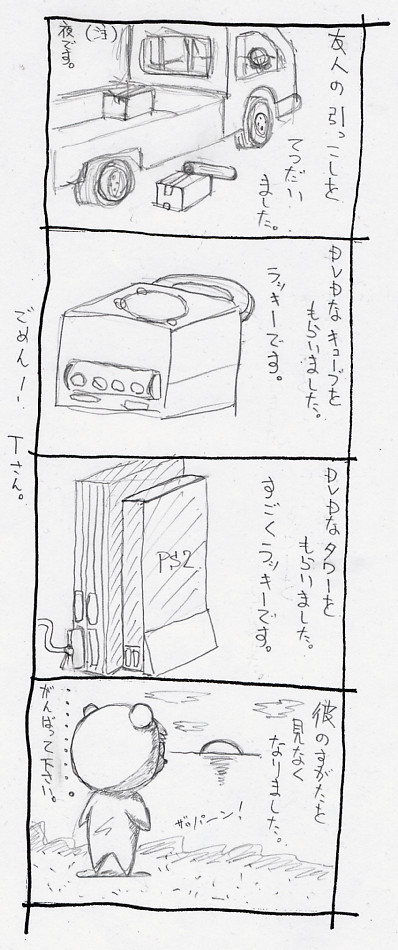 友人の引っこしを
てつだい
ました。
(注)
夜です。
DVDな キューブを
もらいました。
ラッキーです。
DVDな タワーを
もらいました。
すごくラッキーです。
PS2
彼のすがたを
見なく
なりました。
ザパーン!
・・・・・・・
がんばって下さい。
ごめんー!
Tさん。